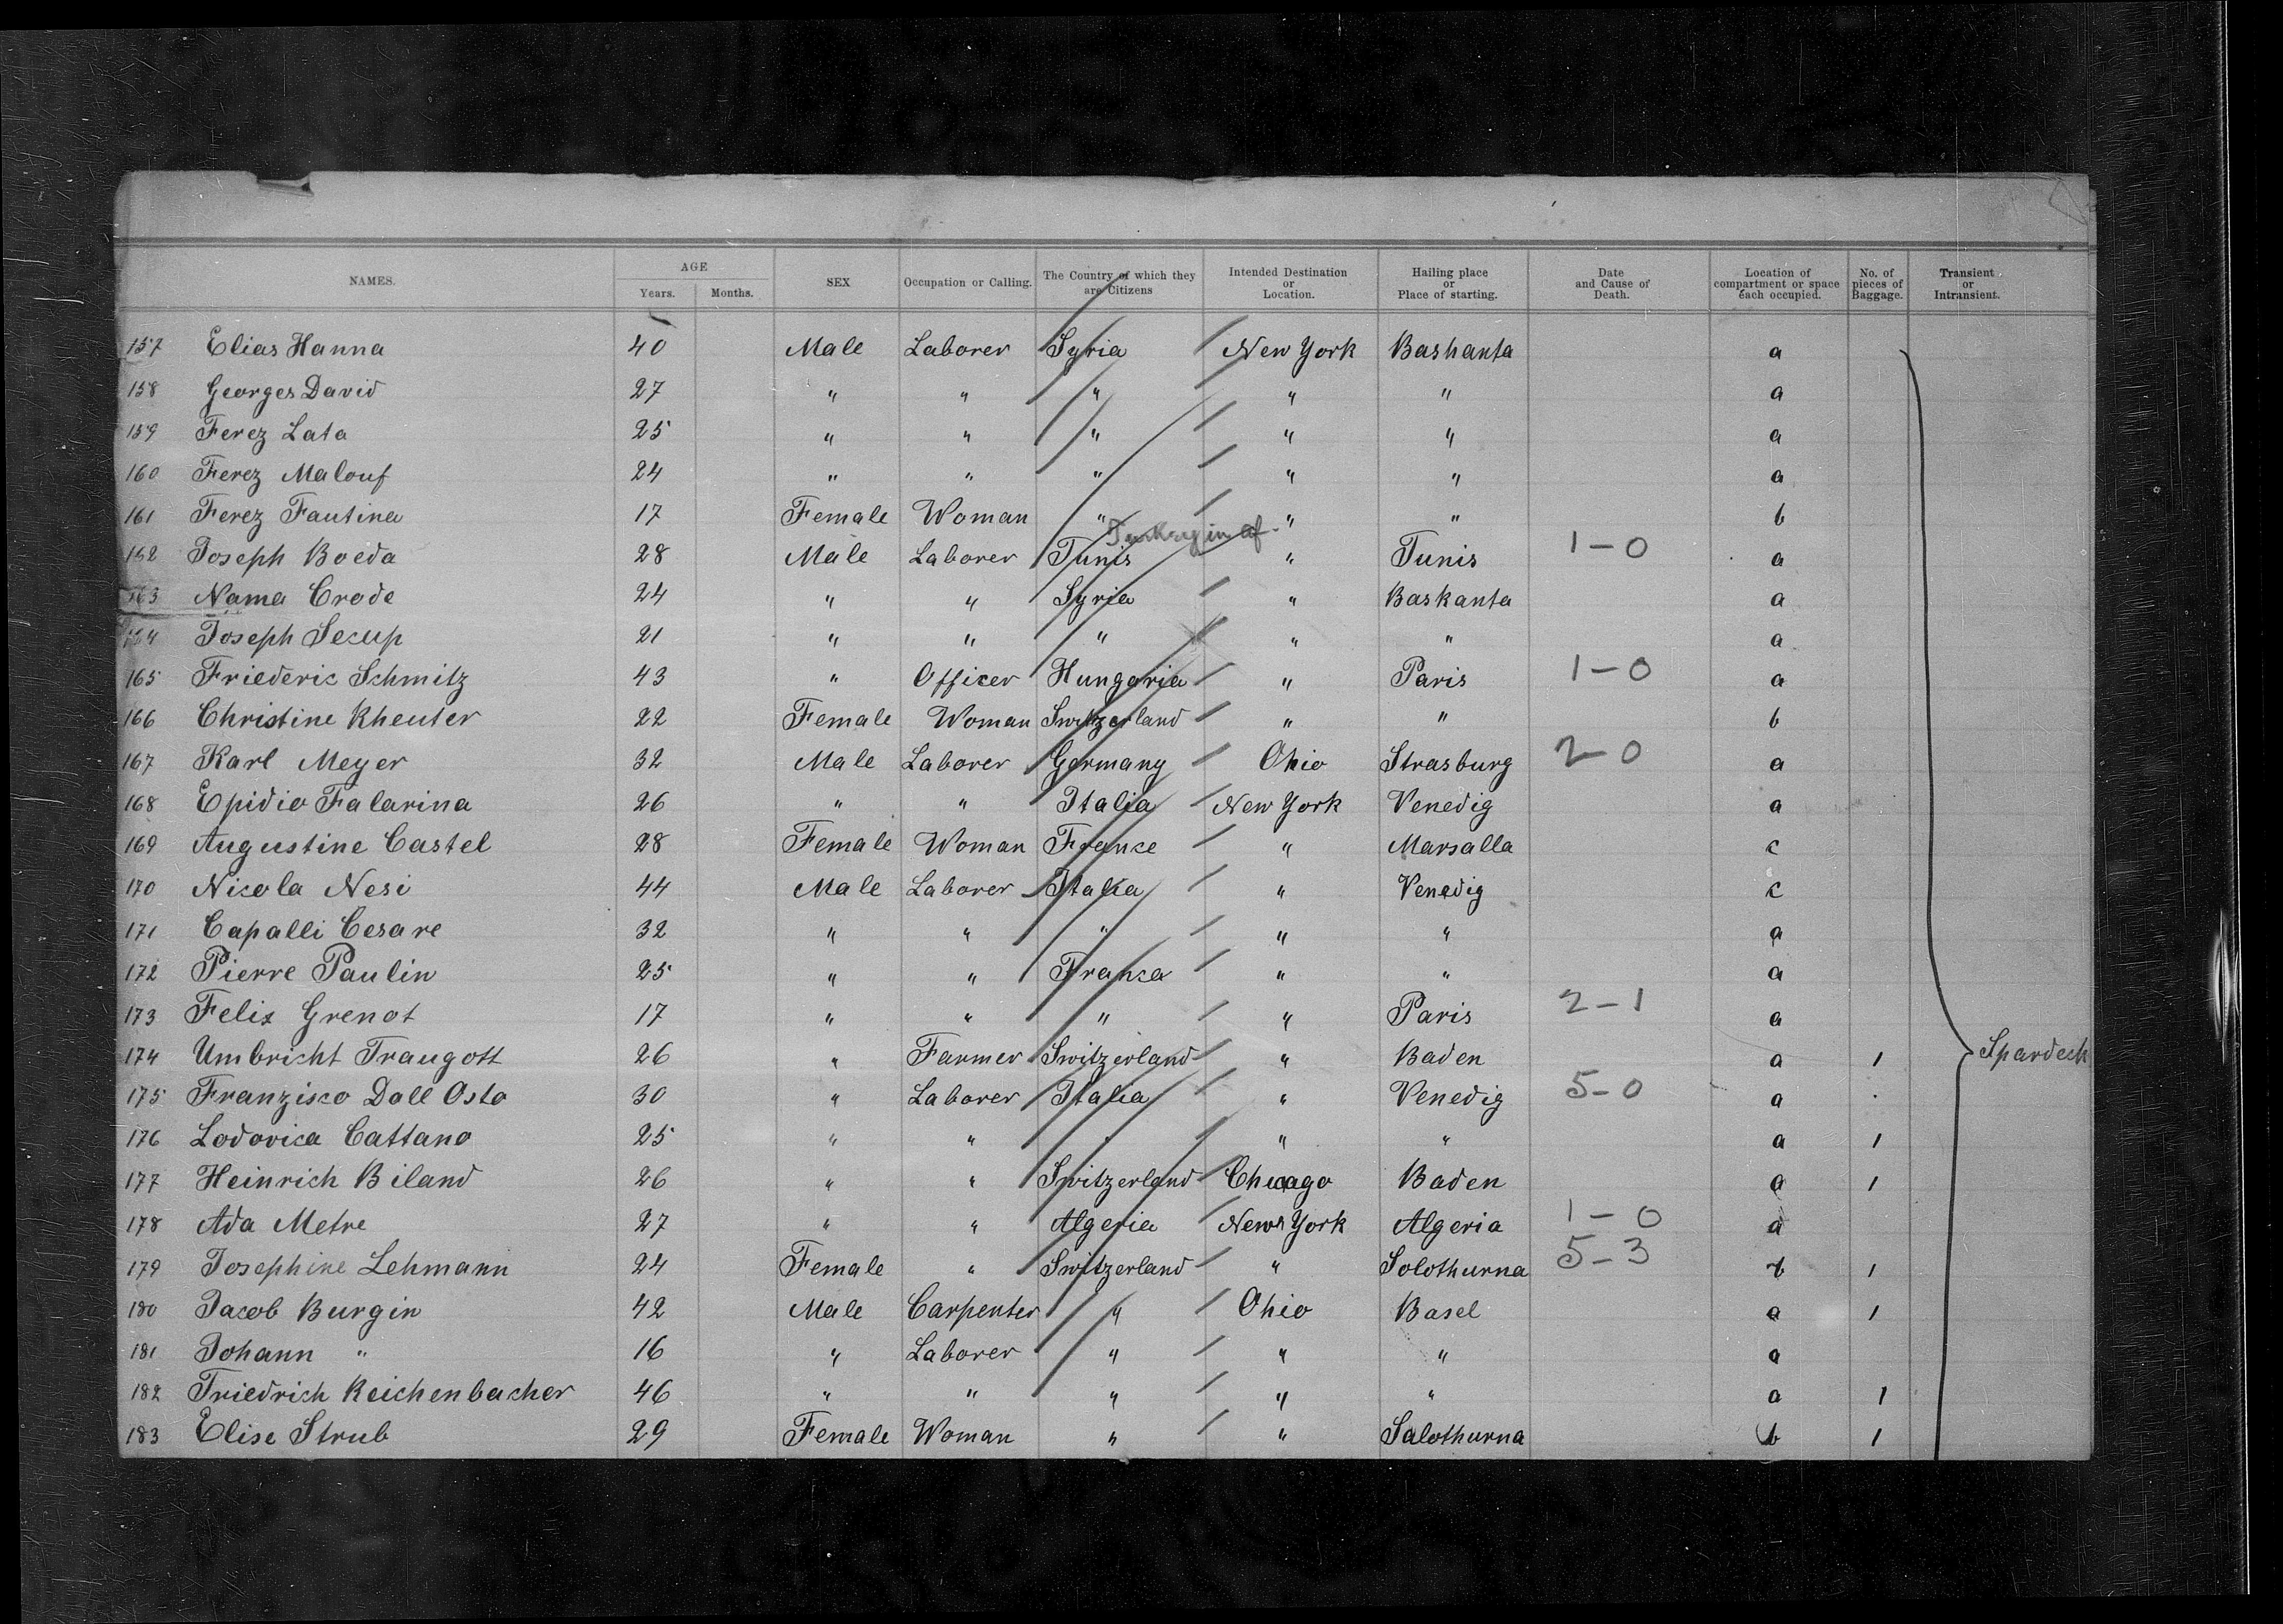 NAMES. AGE Years. Months. SEX Occupation or Calling. The Country of which they are Citizens Intended Destination or Location. Hailing place or Place of starting. Date and Cause of Death. Location of compartment or space each occupied. No. of pieces of Baggage. Transient or Intransient.
157 Elias Hanna 40 Male Laborer Syria New York Bashanta a
158 Georges David 27 " " " " " a
159 Ferez Lata 25 " " " " " a
160 Ferez Malouf 24 " " " " " a
161 Ferez Fautina 17 Female Woman " " " b
Turkey in af.
162 Joseph Boeda 28 Male Laborer Tunis " Tunis 1-0 a
163 Nama Crode 24 " " Syria " Baskanta a
164 Joseph Secup 21 " " " " " a
165 Friederic Schmitz 43 " Officer Hungaria " Paris 1-0 a
166 Christine Kheuter 22 Female Woman Switzerland " " b
167 Karl Meyer 32 Male Laborer Germany Ohio Strasburg 2-0 a
168 Epidio Falarina 26 " " Italia New York Venedig a
169 Augustine Castel 28 Female Woman France " Marsalla c
170 Nicola Nesi 44 Male Laborer Italia " Venedig c
171 Capalli Cesare 32 " " " " " a
172 Pierre Paulin 25 " " Franca " " a
173 Felix Grenot 17 " " " " Paris 2-1 a
174 Umbricht Traugott 26 " Farmer Switzerland " Baden a 1 Spardeck
175 Franzisco Dall Osto 30 " Laborer Italia " Venedig 5-0 a
176 Lodovica Cattano 25 " " " " " a 1
177 Heinrich Biland 26 " " Switzerland Chicago Baden a 1
178 Ada Metre 27 " " Algeria New York Algeria 1-0 a
179 Josephine Lehmann 24 Female " Switzerland " Solothurna 5-3 b 1
180 Jacob Burgin 42 Male Carpenter " Ohio Basel a 1
181 Johann " 16 " Laborer " " " a
182 Friedrich Reichenbacher 46 " " " " " a 1
183 Elise Strub 29 Female Woman " " Salothurna b 1